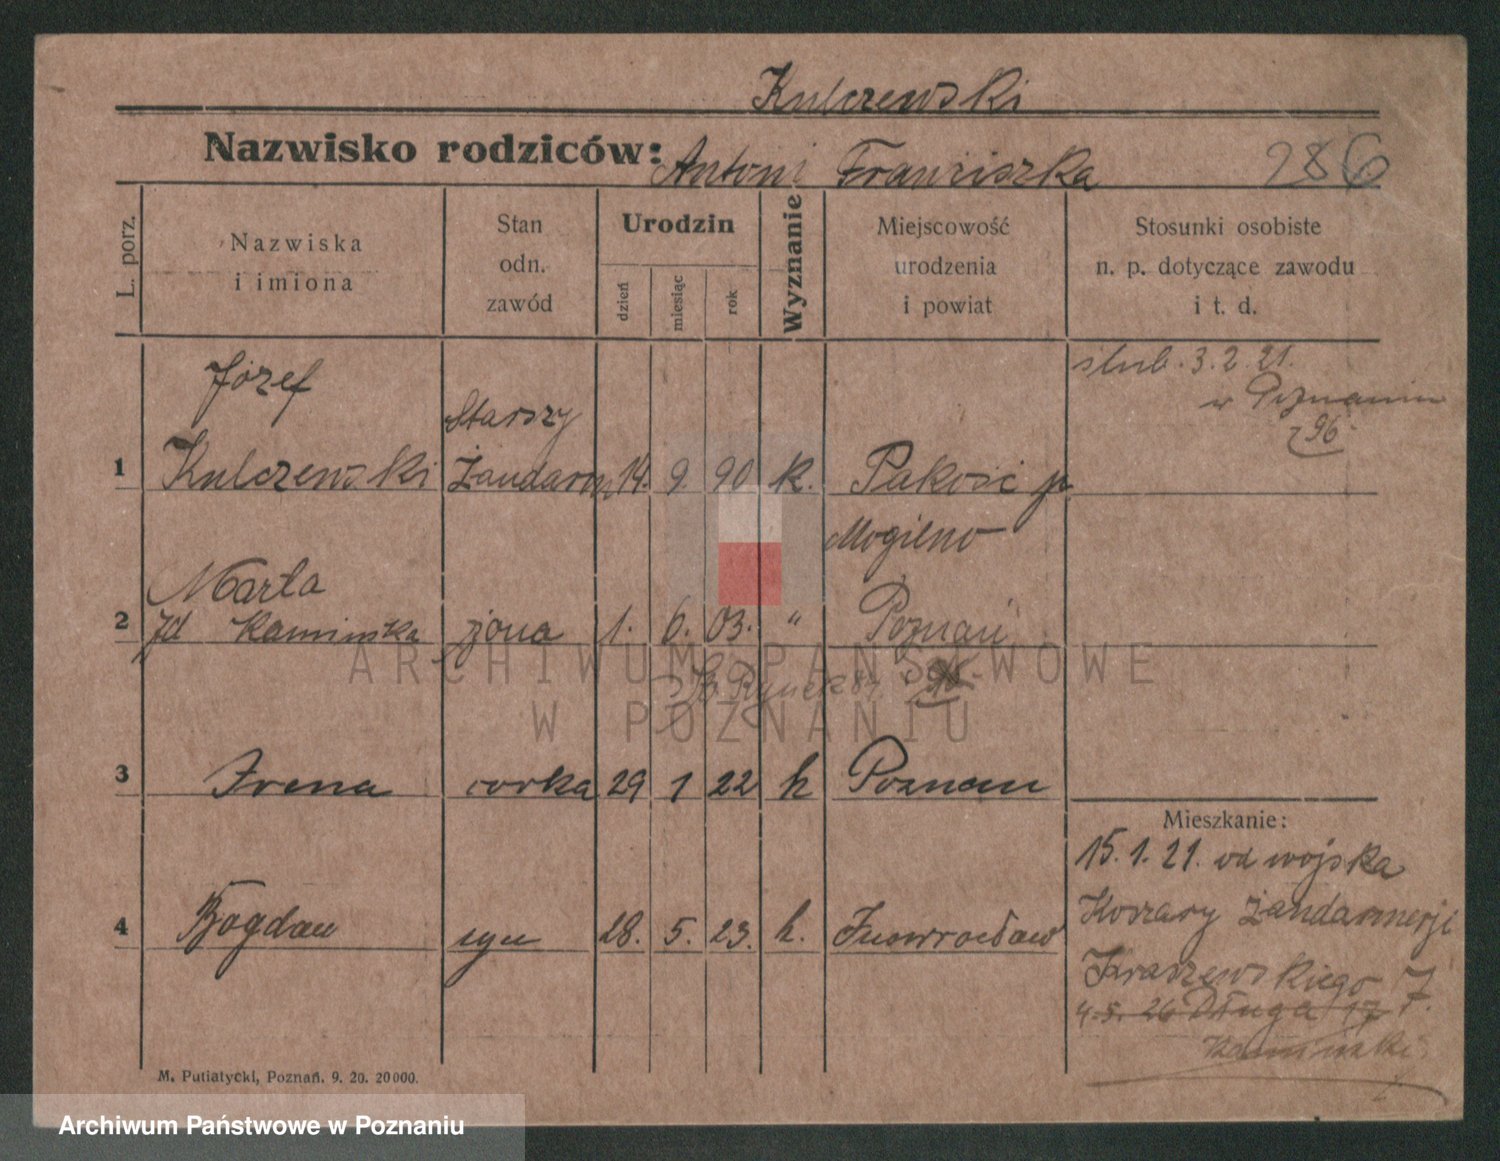 Kulczewski
Nazwisko rodziców: Antoni Franciszka 286
L. porz.
Nazwiska
i imiona
Stan
odn.
zawód
Urodzin
dzień
miesiąc
rok
Wyznanie
Miejscowość
urodzenia
i powiat
Stosunki osobiste
n. p. dotyczące zawodu
i t. d.
ślub. 3.2.21.
w Poznaniu
296
Józef
Starszy
1 Kulczewski Żandarm 14. 9. 90 k. Pakość p
Mogilno
Marta
2 Kaminska żona 1. 6. 03. " Poznań
Rynek
3 Irena corka 29 1 22 k Poznan
Mieszkanie:
15.1.21. od wojska
Koszary Żandarmerji
Kraszewskiego 7
4 Bogdan syn 28. 5. 23. k. Inowrocław
4.5.26 Długa 17 7.
Kaminski
M. Putiatycki, Poznań. 9. 20. 20000.
ARCHIWUM PAŃSTWOWE
W POZNANIU
Archiwum Państwowe w Poznaniu